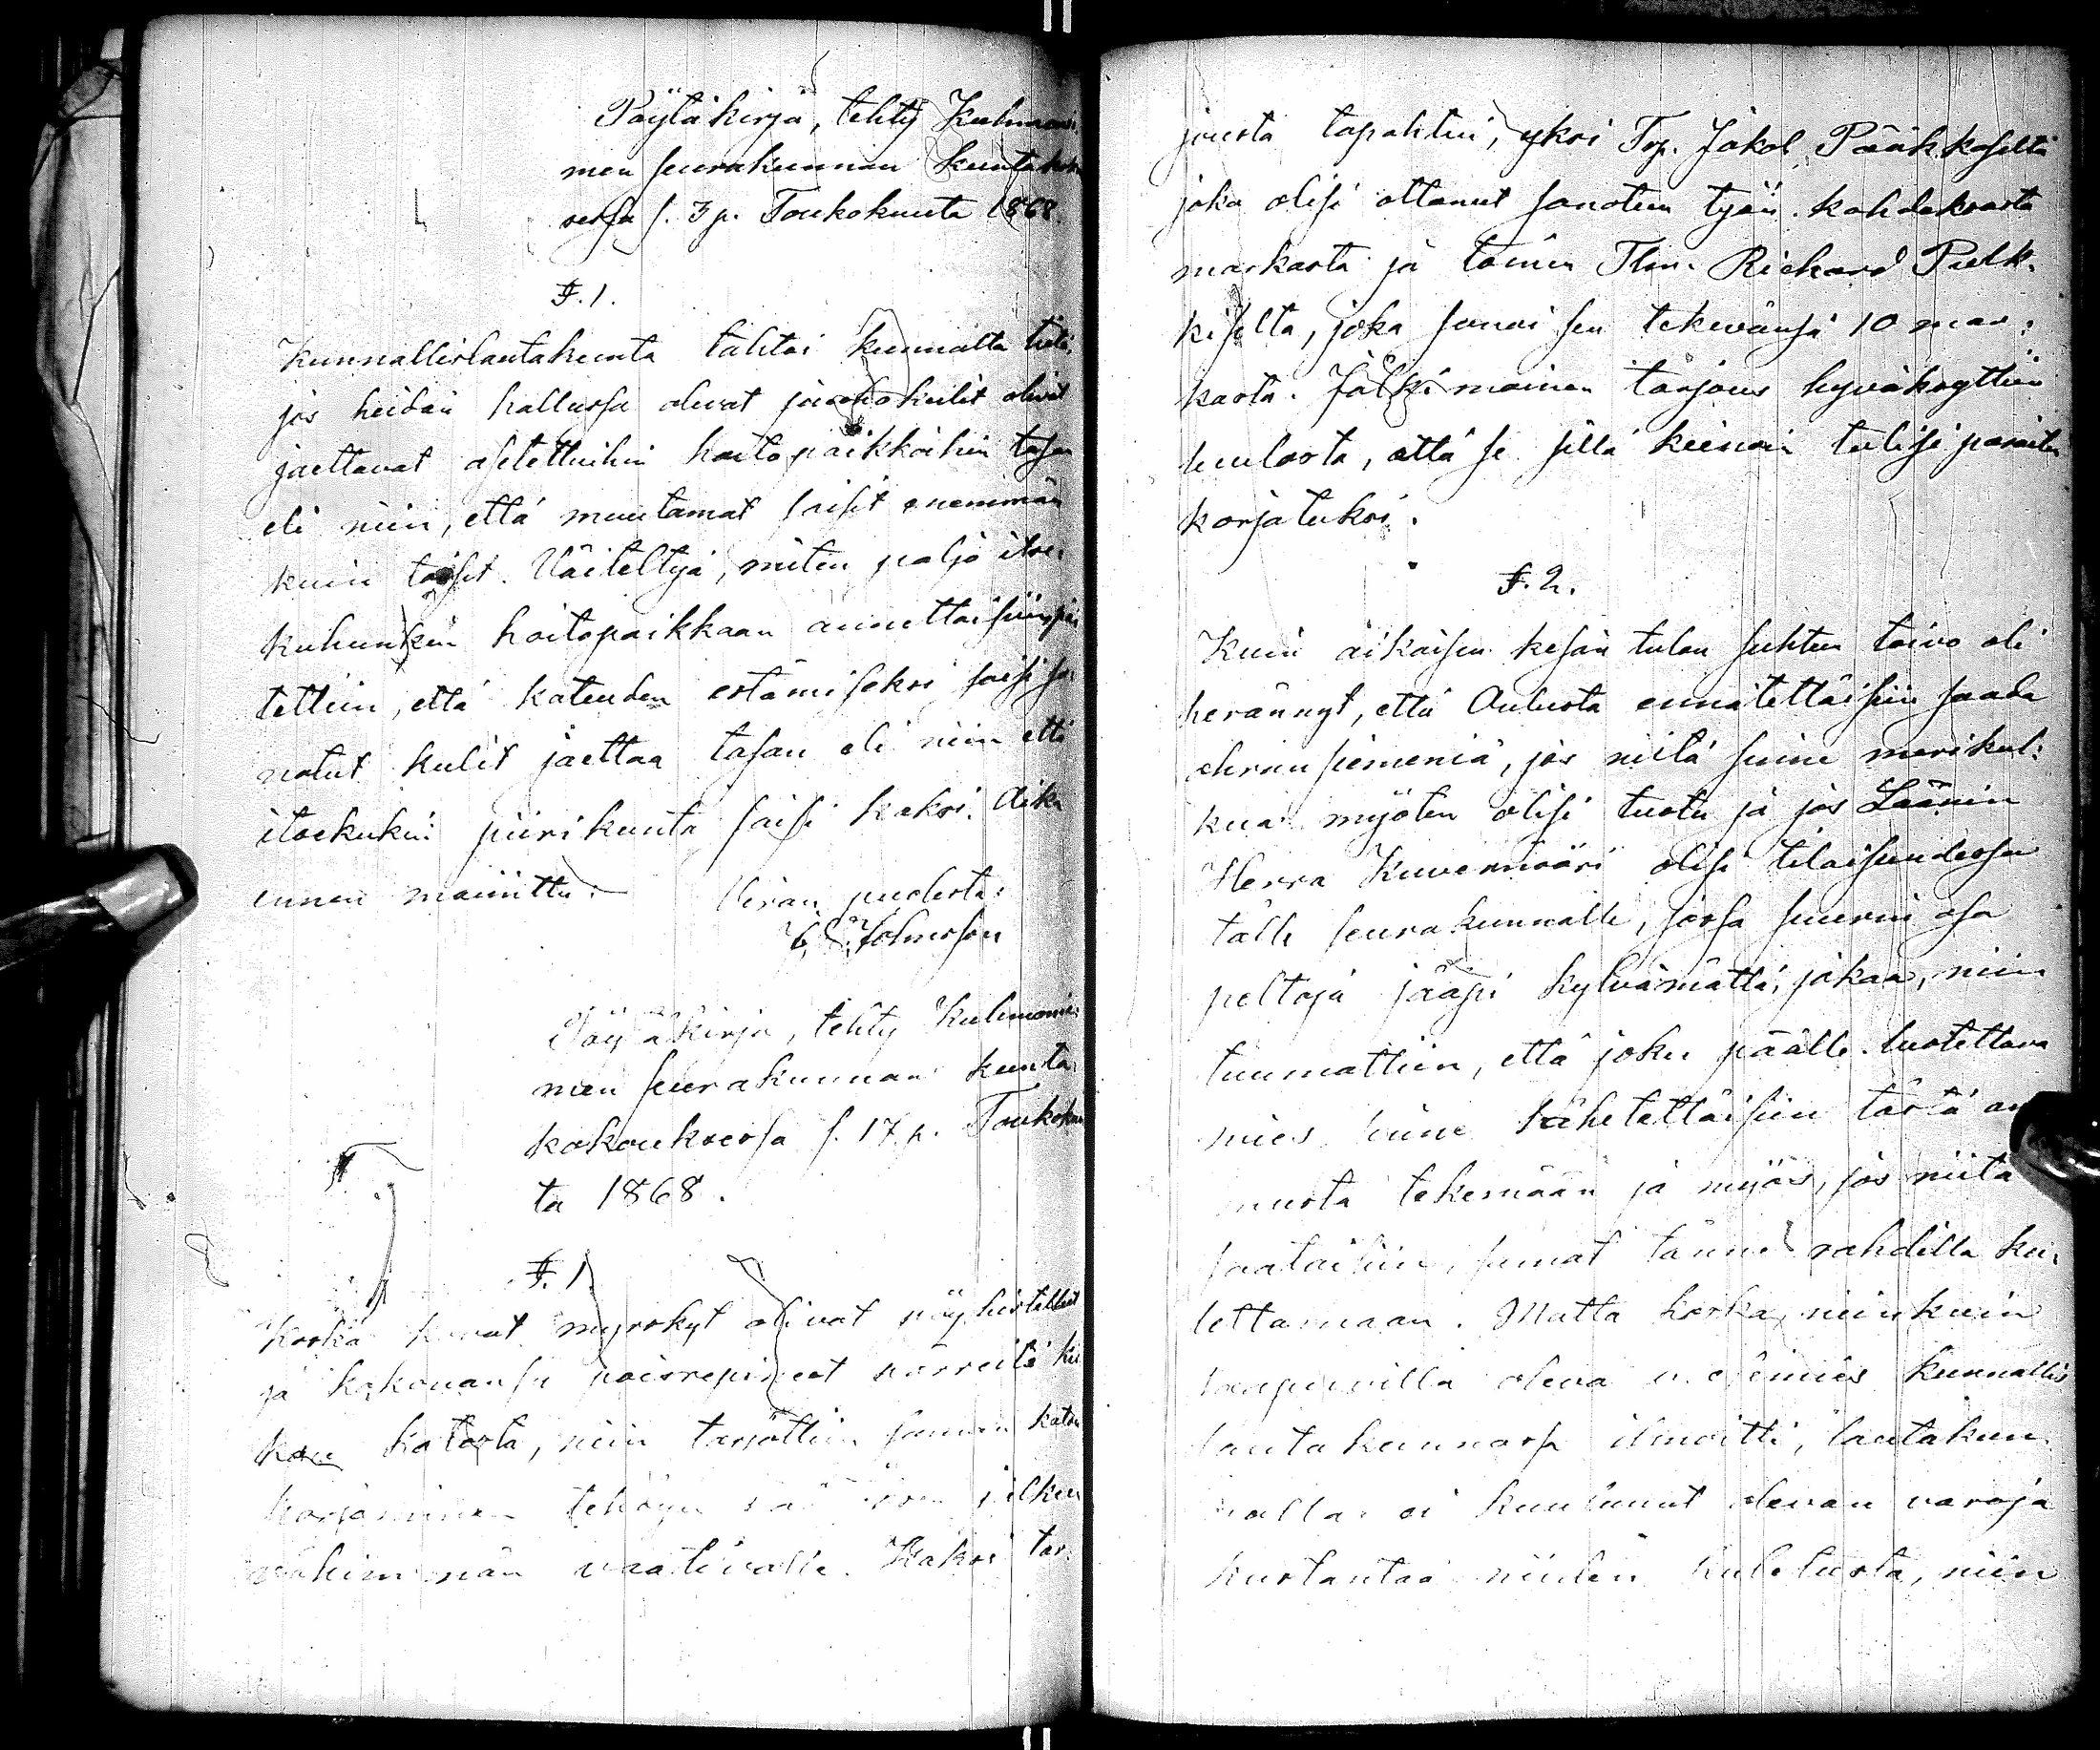 Pöytäkirja, tehty Kuhmonie-
men seurakunnan kuntakou-
sessa s. 3 p. Toukokuuta 1868.
§. 1.
Kunnallislautakunta tahtoi kunnalta tietä,
jos heidän hallussa olevat jauhokulit olivat
jaettavat asetettuihin hoitopaikkoihin tasan
eli niin, että muutamat saisit enemmän
kuin toiset. Väiteltyä, miten paljo itse-
kuhunkin hoitopaikkaan annettaisiin, pää-
tettiin, että kateuden estämiseksi saisi sa-
notut kulit jaettaa tasan eli niin että
itsekukin piirikunta saisi kaksi. Aika
ennen mainittu. Viran puolesta:
Johnsson
Pöytäkirja, tehty Kuhmonie-
men seurakunnan kunta-
kokouksessa s. 17 p. Toukokuu-
ta 1868.
§. 1.
Koska kovat myrskyt olivat pöyhistelleet
ja kokonansa poisrepineet pärreitä kir-
kon katosta, niin tarjottiin sanan katon
korjaminen tehdyn jälkeen
vähimmän vaativalle. Kaksi tar-
jousta tapahtui, yksi Trp. Jakob Pääkköseltä
joka olisi ottanut sanotun työn kahdeksasta
markasta ja toinen Tlln. Richard Pulk-
kiselta, joka sanoi sen tekevänsä 10 mar-
kasta. Jälkimäinen tarjous hyväksyttiin
luulosta, että se sillä keinoin tulisi paraiten
korjatuksi.
§. 2.
Kuin aikaisen kesän tulon suhteen toivo oli
herännyt, että Oulusta ennätettäisiin saada
ohran siemeniä, jos niitä sinne merikul-
kua myöten olisi tuotu ja jos Läänin
Herra Kuvernööri olisi tilaisuudessa
tälle seurakunnalle, jossa suurin osa
peltoja jääpi kylvämättä, jakaa, niin
tuumattiin, että joku päälle luotettava
mies sinne lähetettäisiin tästä ano-
musta tekemään ja myös, jos niitä
saataisiin, samat tänne rahdilla ku-
lettamaan. Mutta koska, niinkuin
saapuvilla oleva esimies kunnallis
lautakunnassa ilmoitti, lautakun-
nalla ei kuulunut olevan varoja
kustantaa niiden kuletusta, niin